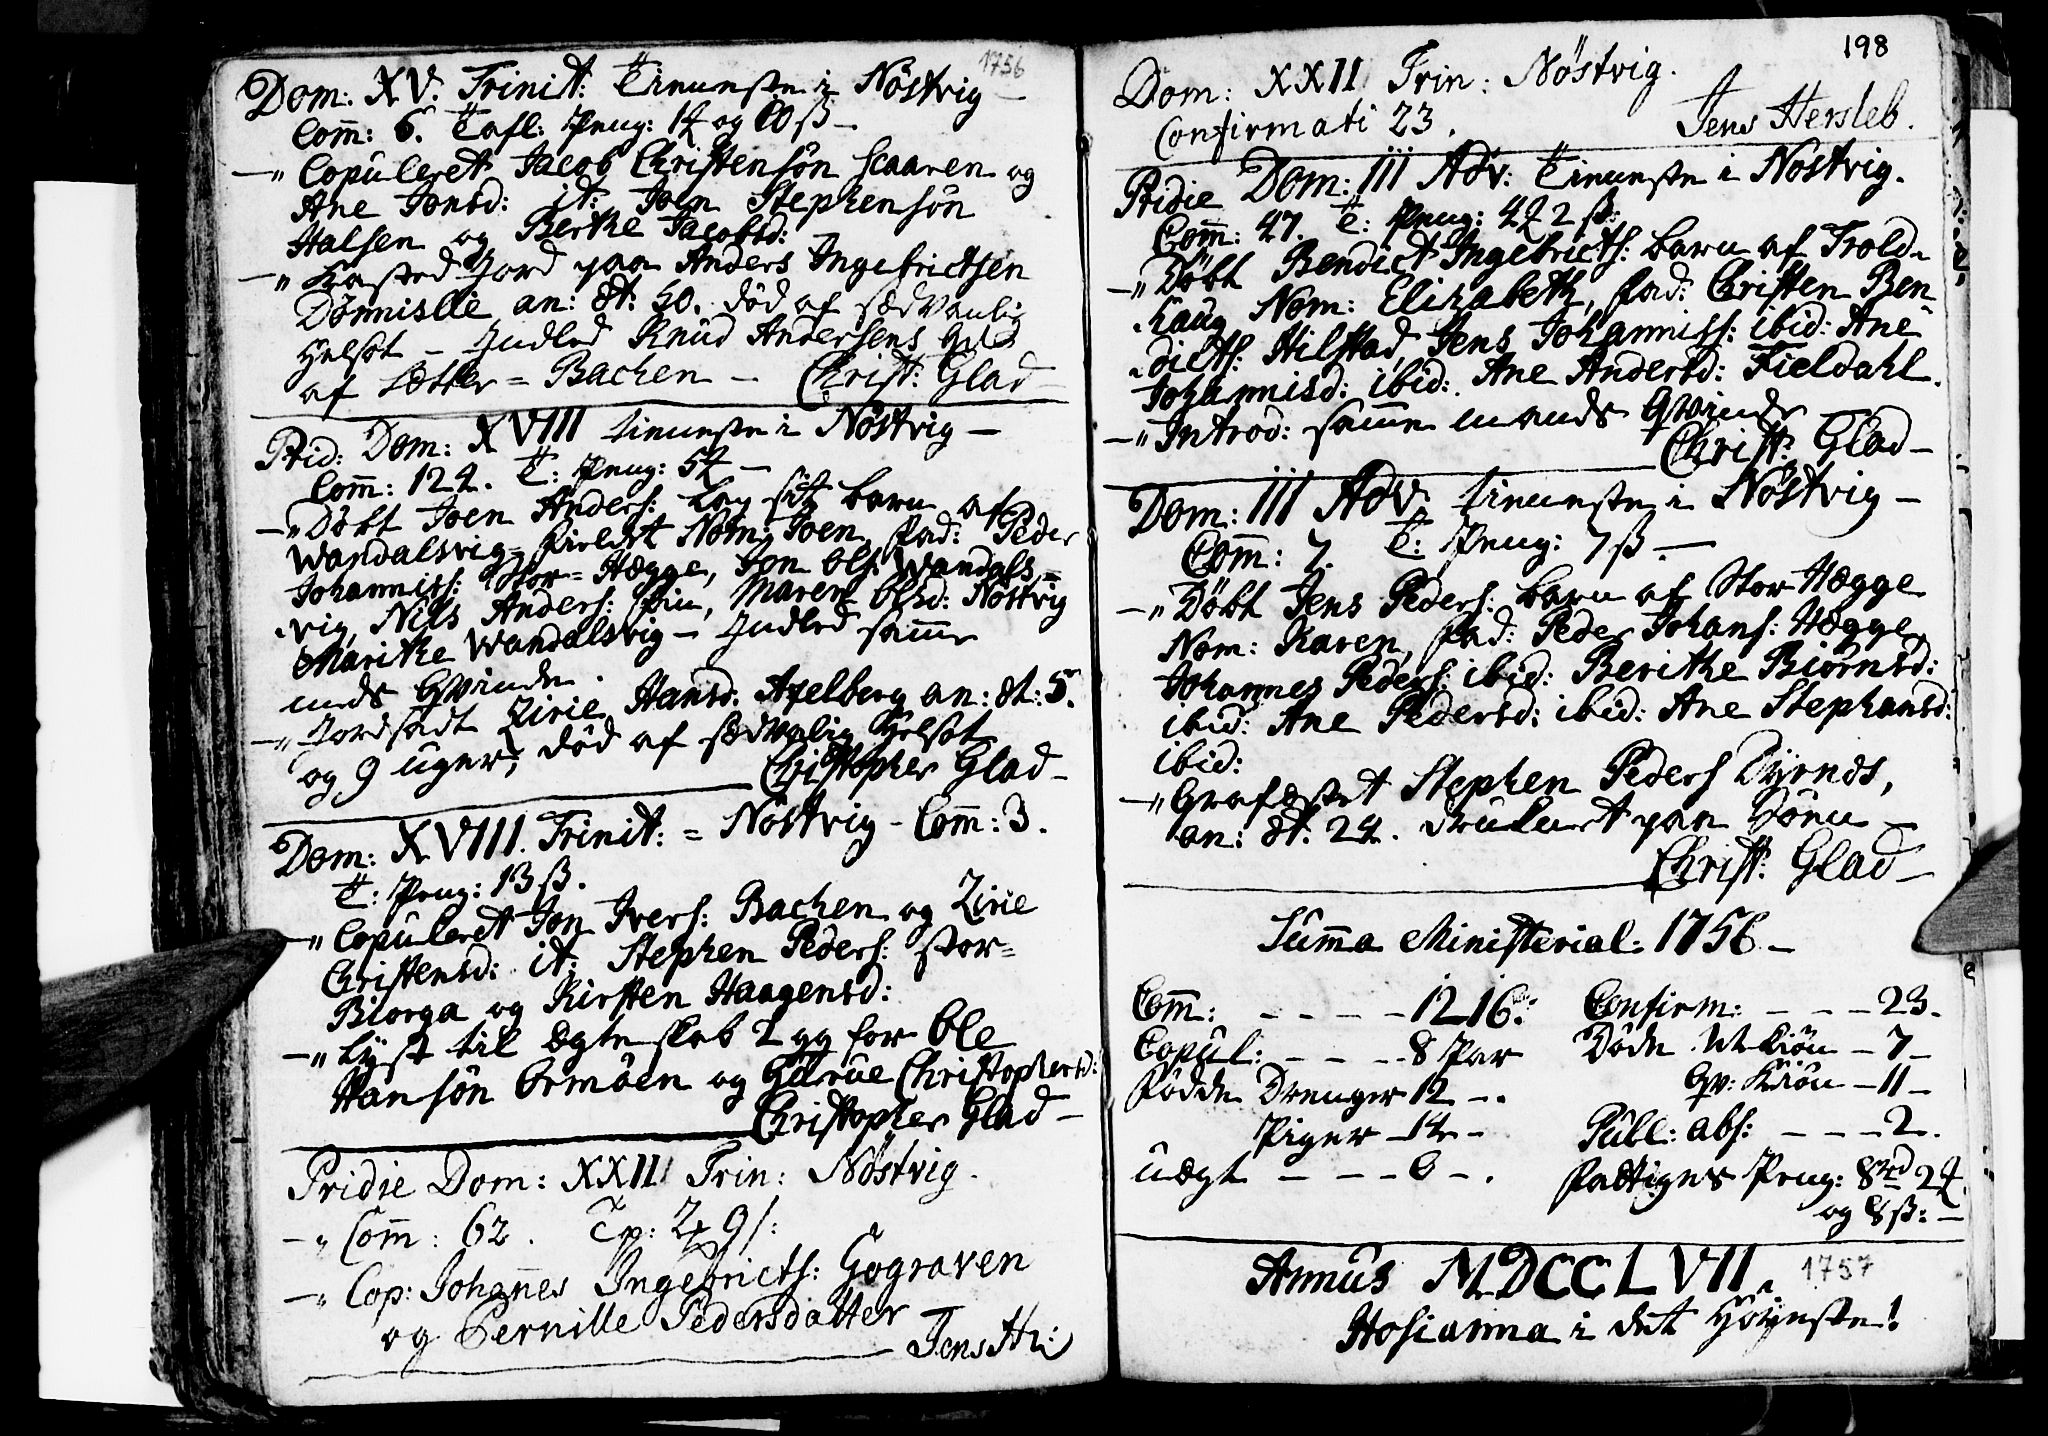 1756
Dom: XV. Trinit: Tienesten i Nöstvig —
Com̄: 6. Tafl: Peng: 1 og 10 ß —
—" Copuleret Jacob Christensön Scaaren og
Ane Jonsd: it: Joen Stephensön
Halsen og Berthe Jacobsd:
—" Kasted Jord paa Anders Ingebrictsen
Dönnislie an: æt: 50. död af sædvanlig
Helsot — Indled Knud Andersens
af Sætter = Bachen — Christ: Glad —
Prid: Dom: XVIII tienesten i Nöstvig —
Com̄: 124. T: Peng: 5 —
—" Döbt Joen Anders: barn af
Wandalsvig Nom: Joen, Fad: Peder
Johaniss: Stor = Hægge, Jon Ols: Wandals =
vig, Nils Anders: Maren Olsd: Nöstvig
Marithe Wandalsvig — Indled sam̄e
mands Qvinde.
—" Jordsadt Zirie Hansd: Axelberg an: æt: 5.
og 9 uger, död af sædvanlig Helsot
Christopher Glad —
Dom: XVIII. Trinit: = Nöstvig - Com̄: 3.
T: Peng: 13 ß.
—" Copuleret Jon Ivers: Bachen og Zirie
Christensd: it: Stephen Peders: Stor =
Biorga og Kirsten Haagensd:
—" Lyst til Ægteskab 2 gg for Ole
Hansön Ormöen og Gurue Christophersd:
Christopher Glad —
Pridie Dom: XXII Trin: Nöstvig.
—" Com̄: 62. Tp: 2 9 ß:
—" Cop: Johan̄es Ingebricts: Gograven
og Pernille Pedersdatter
Jens H:
198
Dom: XXII Trin: Nöstvig.
Confirmati 23. Jens Hersleb.
Pridie Dom: III Adv: Tienesten i Nöstvig.
Com̄: 47. T: Peng: 4 2 ß:
—" Döbt Bendict Ingebricts: barn af Trold-
haug Nom: Elizabeth, Fad: Christen Ben
dicts: Hilstad, Jens Johaniss: ibid: Ane
Johannisd: ibid: Ane Andersd: Fieldahl.
—" Introd: sam̄e mands Qvinde
Christ: Glad —
Dom: III Adv: tienesten i Nöstvig —
Com̄: 7. T: Peng: 7 ß —
—" Döbt Jens Peders: barn af Stor Hægge
Nom: Karen, Fad: Peder Johans: Hægge,
Johannes Peders: ibid: Berithe Biörnsd:
ibid: Ane Pedersd: ibid: Ane Stephansd:
ibid:
—" Grafæstet Stephen Peders Dyrnds,
an: æt: 24. druknet paa Dönn —
Christ: Glad —
Sum̄a Ministerial: 1756 —
Com̄: - - - - 1216: Confirm: - - - 23.
Copul: - - - 8 Par Döde M: Kiön — 7 —
födde Drenger 12 —. Qv: Kiön — 11 —
Piger — 14 — Publ: abs: - - - 2.
uægt - - - 0 —. Fattiges Peng: 8 rd 2
og 8 ß: —
Annus MDCCLVII. 1757
Hosianna i det Höyeste!